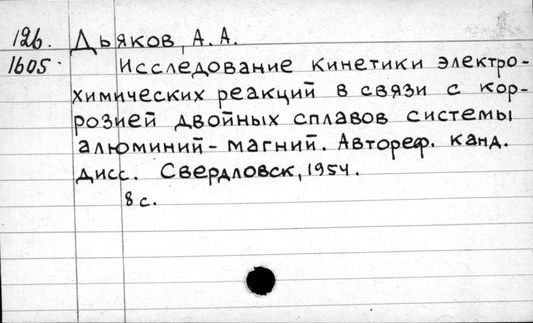 126. Дьяков, А. А.
1605. Исследование кинетики электро-
химических реакций в связи с кор-
розией двойных сплавов системы
алюминий - магний. Автореф. канд.
дисс. Свердловск, 1954.
8 с.